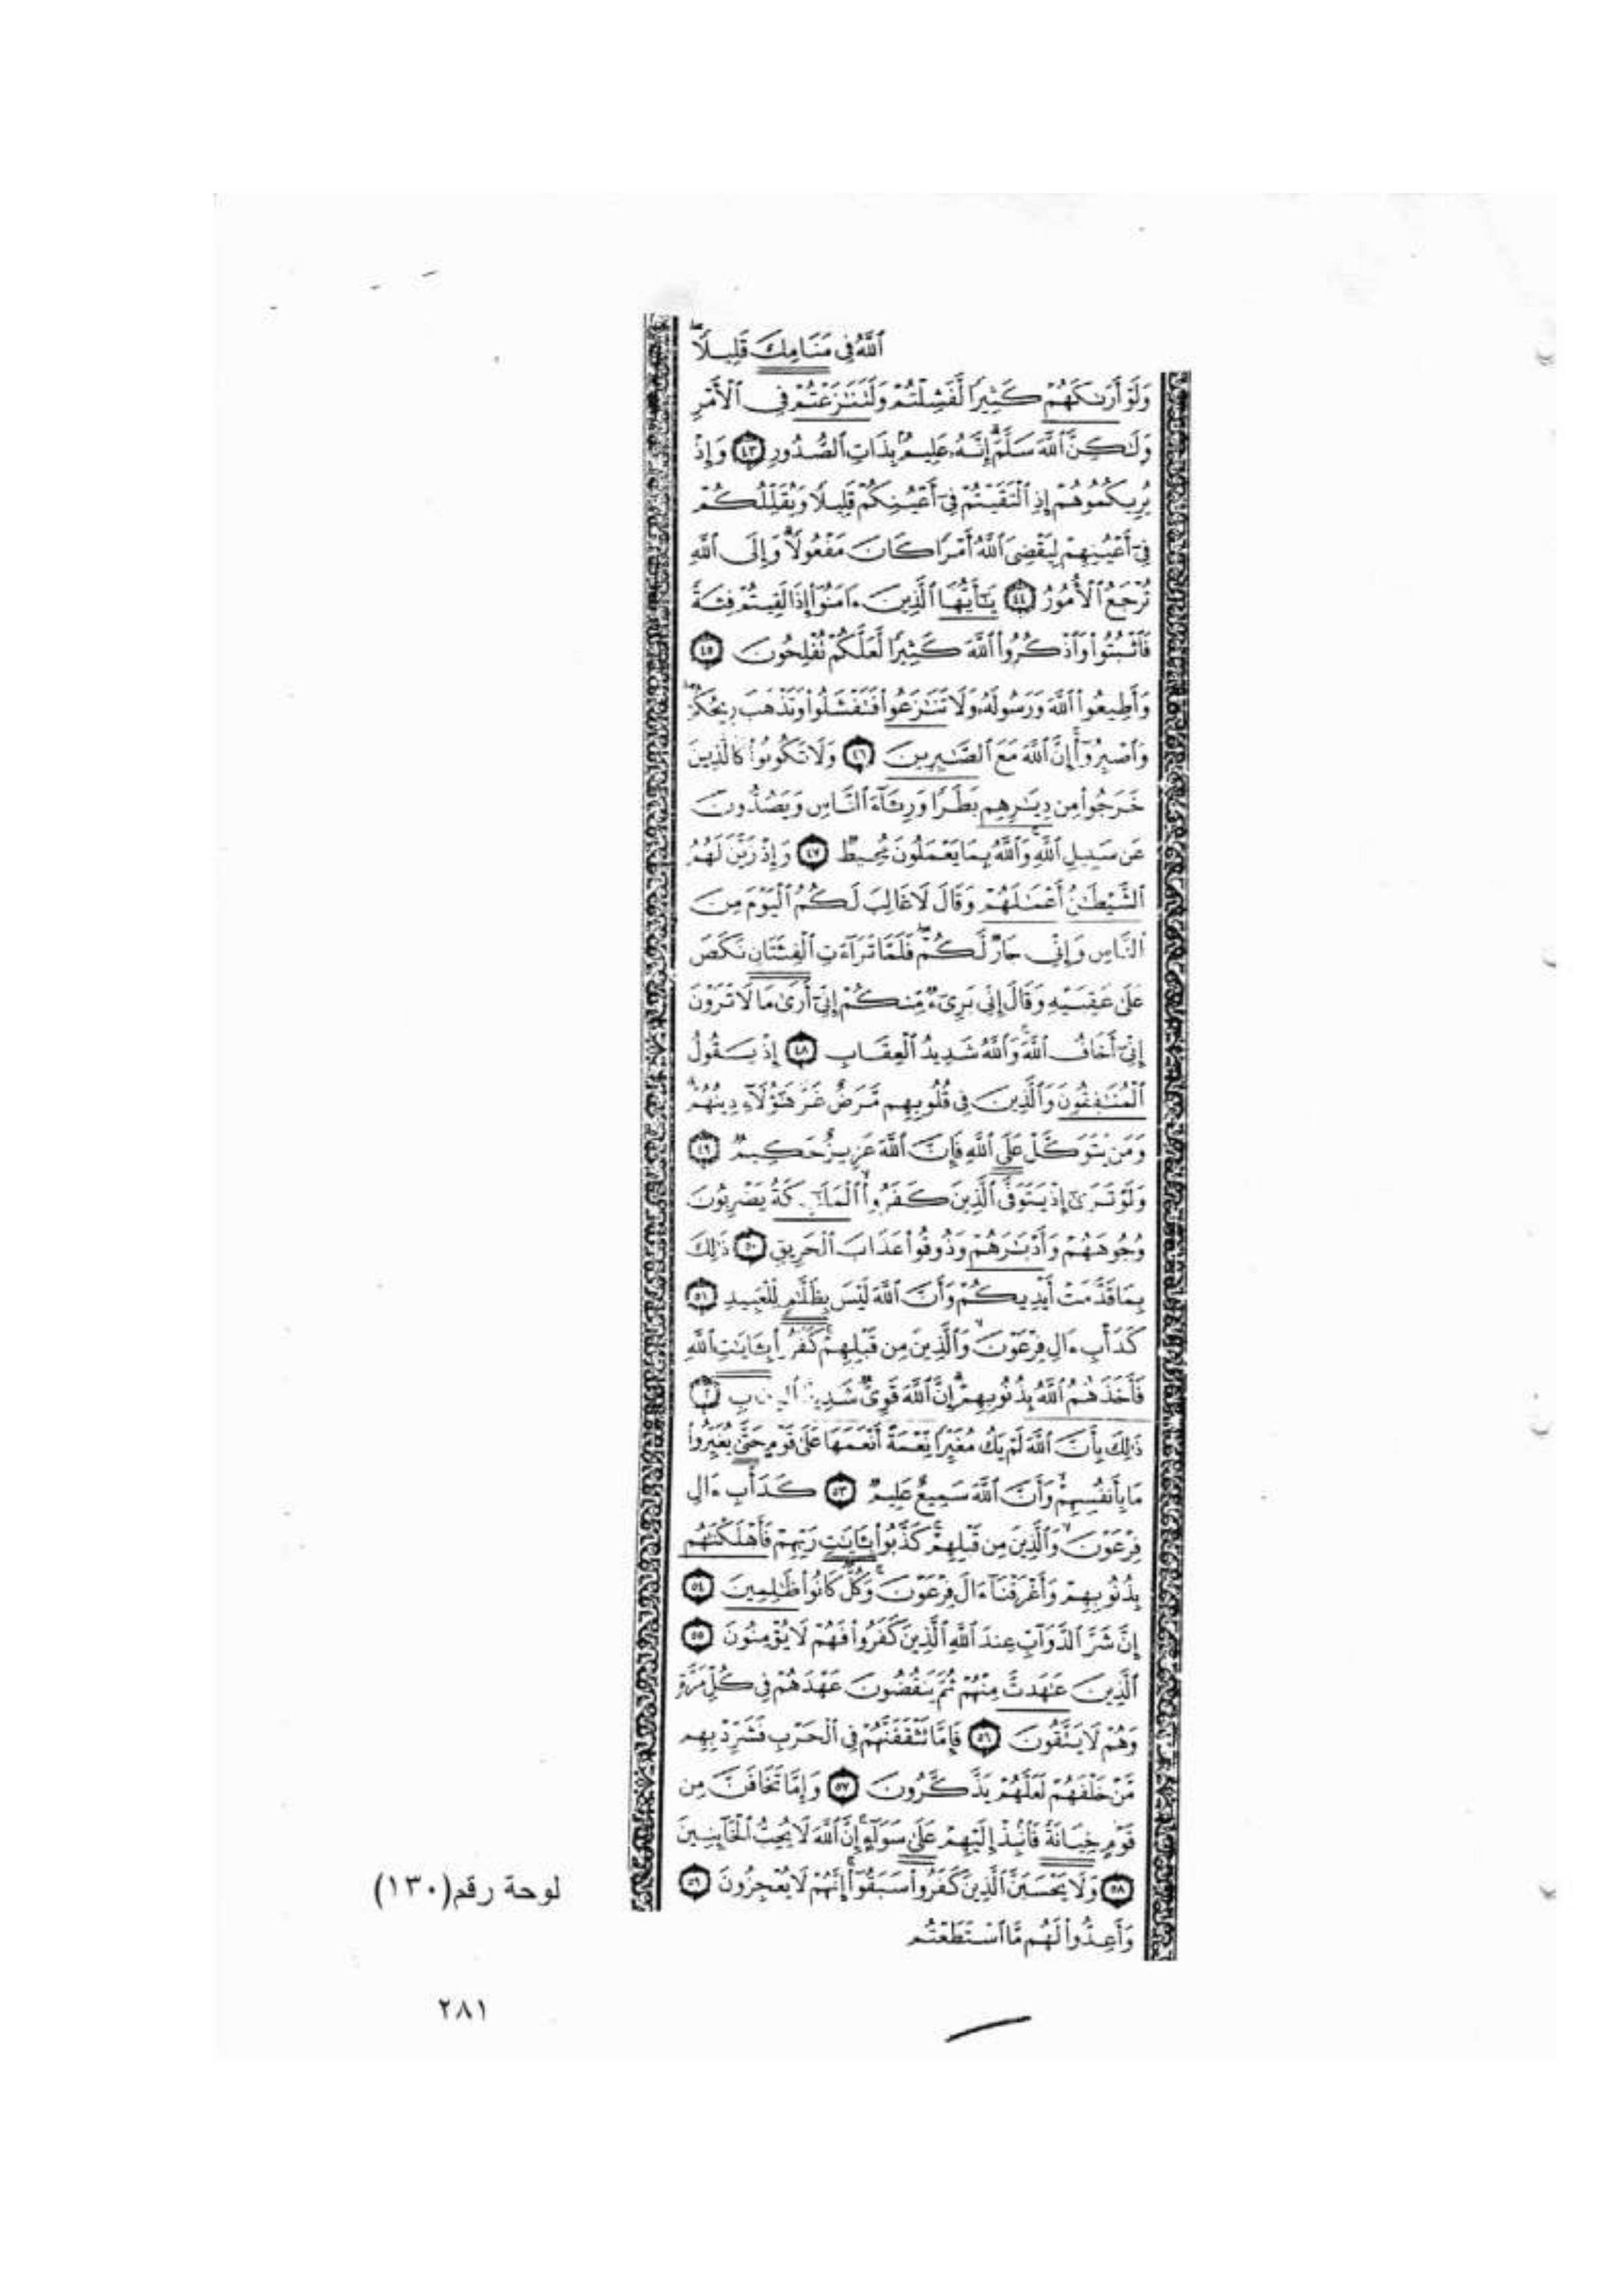 ٱللَّهُ فِي مَنَامِكَ قَلِيلًاۖ
وَلَوْ أَرَىٰكَهُمْ كَثِيرًا لَّفَشِلْتُمْ وَلَتَنَٰزَعْتُمْ فِي ٱلْأَمْرِ
وَلَٰكِنَّ ٱللَّهَ سَلَّمَۗ إِنَّهُۥ عَلِيمٌۢ بِذَاتِ ٱلصُّدُورِ ٤٣ وَإِذْ
يُرِيكُمُوهُمْ إِذِ ٱلْتَقَيْتُمْ فِيٓ أَعْيُنِكُمْ قَلِيلًا وَيُقَلِّلُكُمْ
فِيٓ أَعْيُنِهِمْ لِيَقْضِيَ ٱللَّهُ أَمْرًا كَانَ مَفْعُولًاۗ وَإِلَى ٱللَّهِ
تُرْجَعُ ٱلْأُمُورُ ٤٤ يَٰٓأَيُّهَا ٱلَّذِينَ ءَامَنُوٓا۟ إِذَا لَقِيتُمْ فِئَةً
فَٱثْبُتُوا۟ وَٱذْكُرُوا۟ ٱللَّهَ كَثِيرًا لَّعَلَّكُمْ تُفْلِحُونَ ٤٥
وَأَطِيعُوا۟ ٱللَّهَ وَرَسُولَهُۥ وَلَا تَنَٰزَعُوا۟ فَتَفْشَلُوا۟ وَتَذْهَبَ رِيحُكُمْۖ
وَٱصْبِرُوٓا۟ۚ إِنَّ ٱللَّهَ مَعَ ٱلصَّٰبِرِينَ ٤٦ وَلَا تَكُونُوا۟ كَٱلَّذِينَ
خَرَجُوا۟ مِن دِيَٰرِهِم بَطَرًا وَرِئَآءَ ٱلنَّاسِ وَيَصُدُّونَ
عَن سَبِيلِ ٱللَّهِۚ وَٱللَّهُ بِمَا يَعْمَلُونَ مُحِيطٌ ٤٧ وَإِذْ زَيَّنَ لَهُمُ
ٱلشَّيْطَٰنُ أَعْمَٰلَهُمْ وَقَالَ لَا غَالِبَ لَكُمُ ٱلْيَوْمَ مِنَ
ٱلنَّاسِ وَإِنِّي جَارٌ لَّكُمْۖ فَلَمَّا تَرَآءَتِ ٱلْفِئَتَانِ نَكَصَ
عَلَىٰ عَقِبَيْهِ وَقَالَ إِنِّي بَرِيٓءٌ مِّنكُمْ إِنِّيٓ أَرَىٰ مَا لَا تَرَوْنَ
إِنِّيٓ أَخَافُ ٱللَّهَۚ وَٱللَّهُ شَدِيدُ ٱلْعِقَابِ ٤٨ إِذْ يَقُولُ
ٱلْمُنَٰفِقُونَ وَٱلَّذِينَ فِي قُلُوبِهِم مَّرَضٌ غَرَّ هَٰٓؤُلَآءِ دِينُهُمْۗ
وَمَن يَتَوَكَّلْ عَلَى ٱللَّهِ فَإِنَّ ٱللَّهَ عَزِيزٌ حَكِيمٌ ٤٩
وَلَوْ تَرَىٰٓ إِذْ يَتَوَفَّى ٱلَّذِينَ كَفَرُوا۟ۙ ٱلْمَلَٰٓئِكَةُ يَضْرِبُونَ
وُجُوهَهُمْ وَأَدْبَٰرَهُمْ وَذُوقُوا۟ عَذَابَ ٱلْحَرِيقِ ٥٠ ذَٰلِكَ
بِمَا قَدَّمَتْ أَيْدِيكُمْ وَأَنَّ ٱللَّهَ لَيْسَ بِظَلَّٰمٍ لِّلْعَبِيدِ ٥١
كَدَأْبِ ءَالِ فِرْعَوْنَۙ وَٱلَّذِينَ مِن قَبْلِهِمْۚ كَفَرُوا۟ بِـَٔايَٰتِ ٱللَّهِ
فَأَخَذَهُمُ ٱللَّهُ بِذُنُوبِهِمْۗ إِنَّ ٱللَّهَ قَوِيٌّ شَدِيدُ
ذَٰلِكَ بِأَنَّ ٱللَّهَ لَمْ يَكُ مُغَيِّرًا نِّعْمَةً أَنْعَمَهَا عَلَىٰ قَوْمٍ حَتَّىٰ يُغَيِّرُوا۟
مَا بِأَنفُسِهِمْۙ وَأَنَّ ٱللَّهَ سَمِيعٌ عَلِيمٌ ٥٣ كَدَأْبِ ءَالِ
فِرْعَوْنَۙ وَٱلَّذِينَ مِن قَبْلِهِمْۚ كَذَّبُوا۟ بِـَٔايَٰتِ رَبِّهِمْ فَأَهْلَكْنَٰهُم
بِذُنُوبِهِمْ وَأَغْرَقْنَآ ءَالَ فِرْعَوْنَۚ وَكُلٌّ كَانُوا۟ ظَٰلِمِينَ ٥٤
إِنَّ شَرَّ ٱلدَّوَآبِّ عِندَ ٱللَّهِ ٱلَّذِينَ كَفَرُوا۟ فَهُمْ لَا يُؤْمِنُونَ ٥٥
ٱلَّذِينَ عَٰهَدتَّ مِنْهُمْ ثُمَّ يَنقُضُونَ عَهْدَهُمْ فِي كُلِّ مَرَّةٍ
وَهُمْ لَا يَتَّقُونَ ٥٦ فَإِمَّا تَثْقَفَنَّهُمْ فِي ٱلْحَرْبِ فَشَرِّدْ بِهِم
مَّنْ خَلْفَهُمْ لَعَلَّهُمْ يَذَّكَّرُونَ ٥٧ وَإِمَّا تَخَافَنَّ مِن
قَوْمٍ خِيَانَةً فَٱنۢبِذْ إِلَيْهِمْ عَلَىٰ سَوَآءٍۚ إِنَّ ٱللَّهَ لَا يُحِبُّ ٱلْخَآئِنِينَ
٥٨ وَلَا يَحْسَبَنَّ ٱلَّذِينَ كَفَرُوا۟ سَبَقُوٓا۟ۚ إِنَّهُمْ لَا يُعْجِزُونَ ٥٩
وَأَعِدُّوا۟ لَهُم مَّا ٱسْتَطَعْتُم
لوحة رقم(١٣٠)
٢٨١